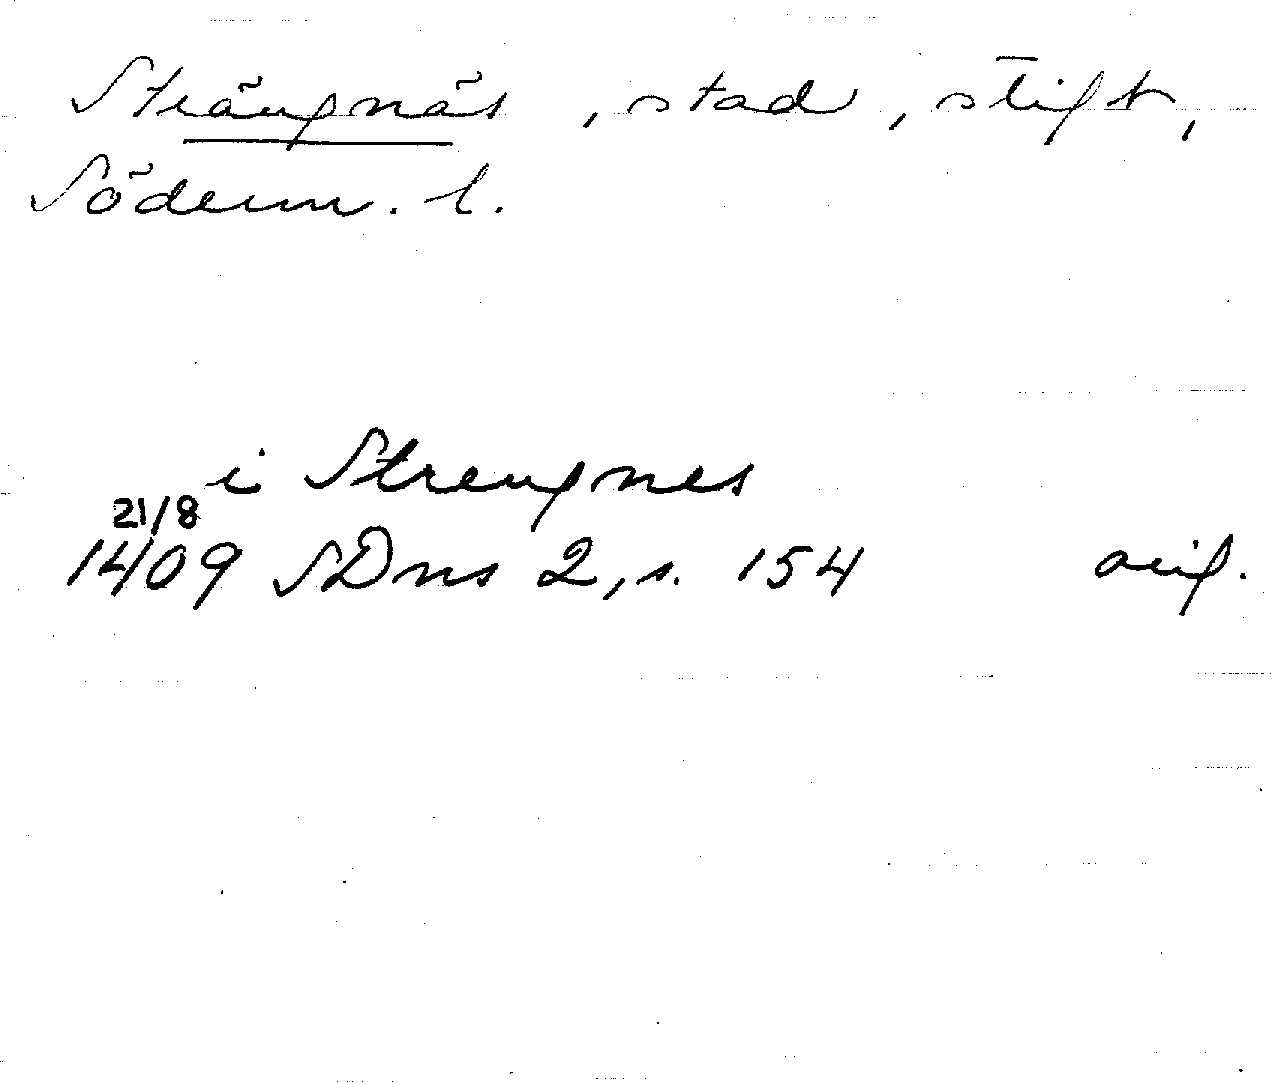 Strängnäs, stad, stift,
Söderm. l.
i Strengnes
21/8
1409 SDns 2, s. 154 orig.